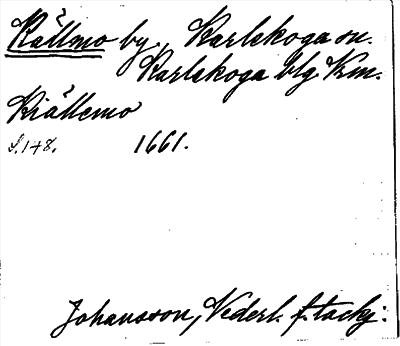 Källmo by, Karlskoga sn.
Karlskoga blg. Krm.
Kiällemo
S. 148. 1661.
Johansson, Nederl. f. tackj.